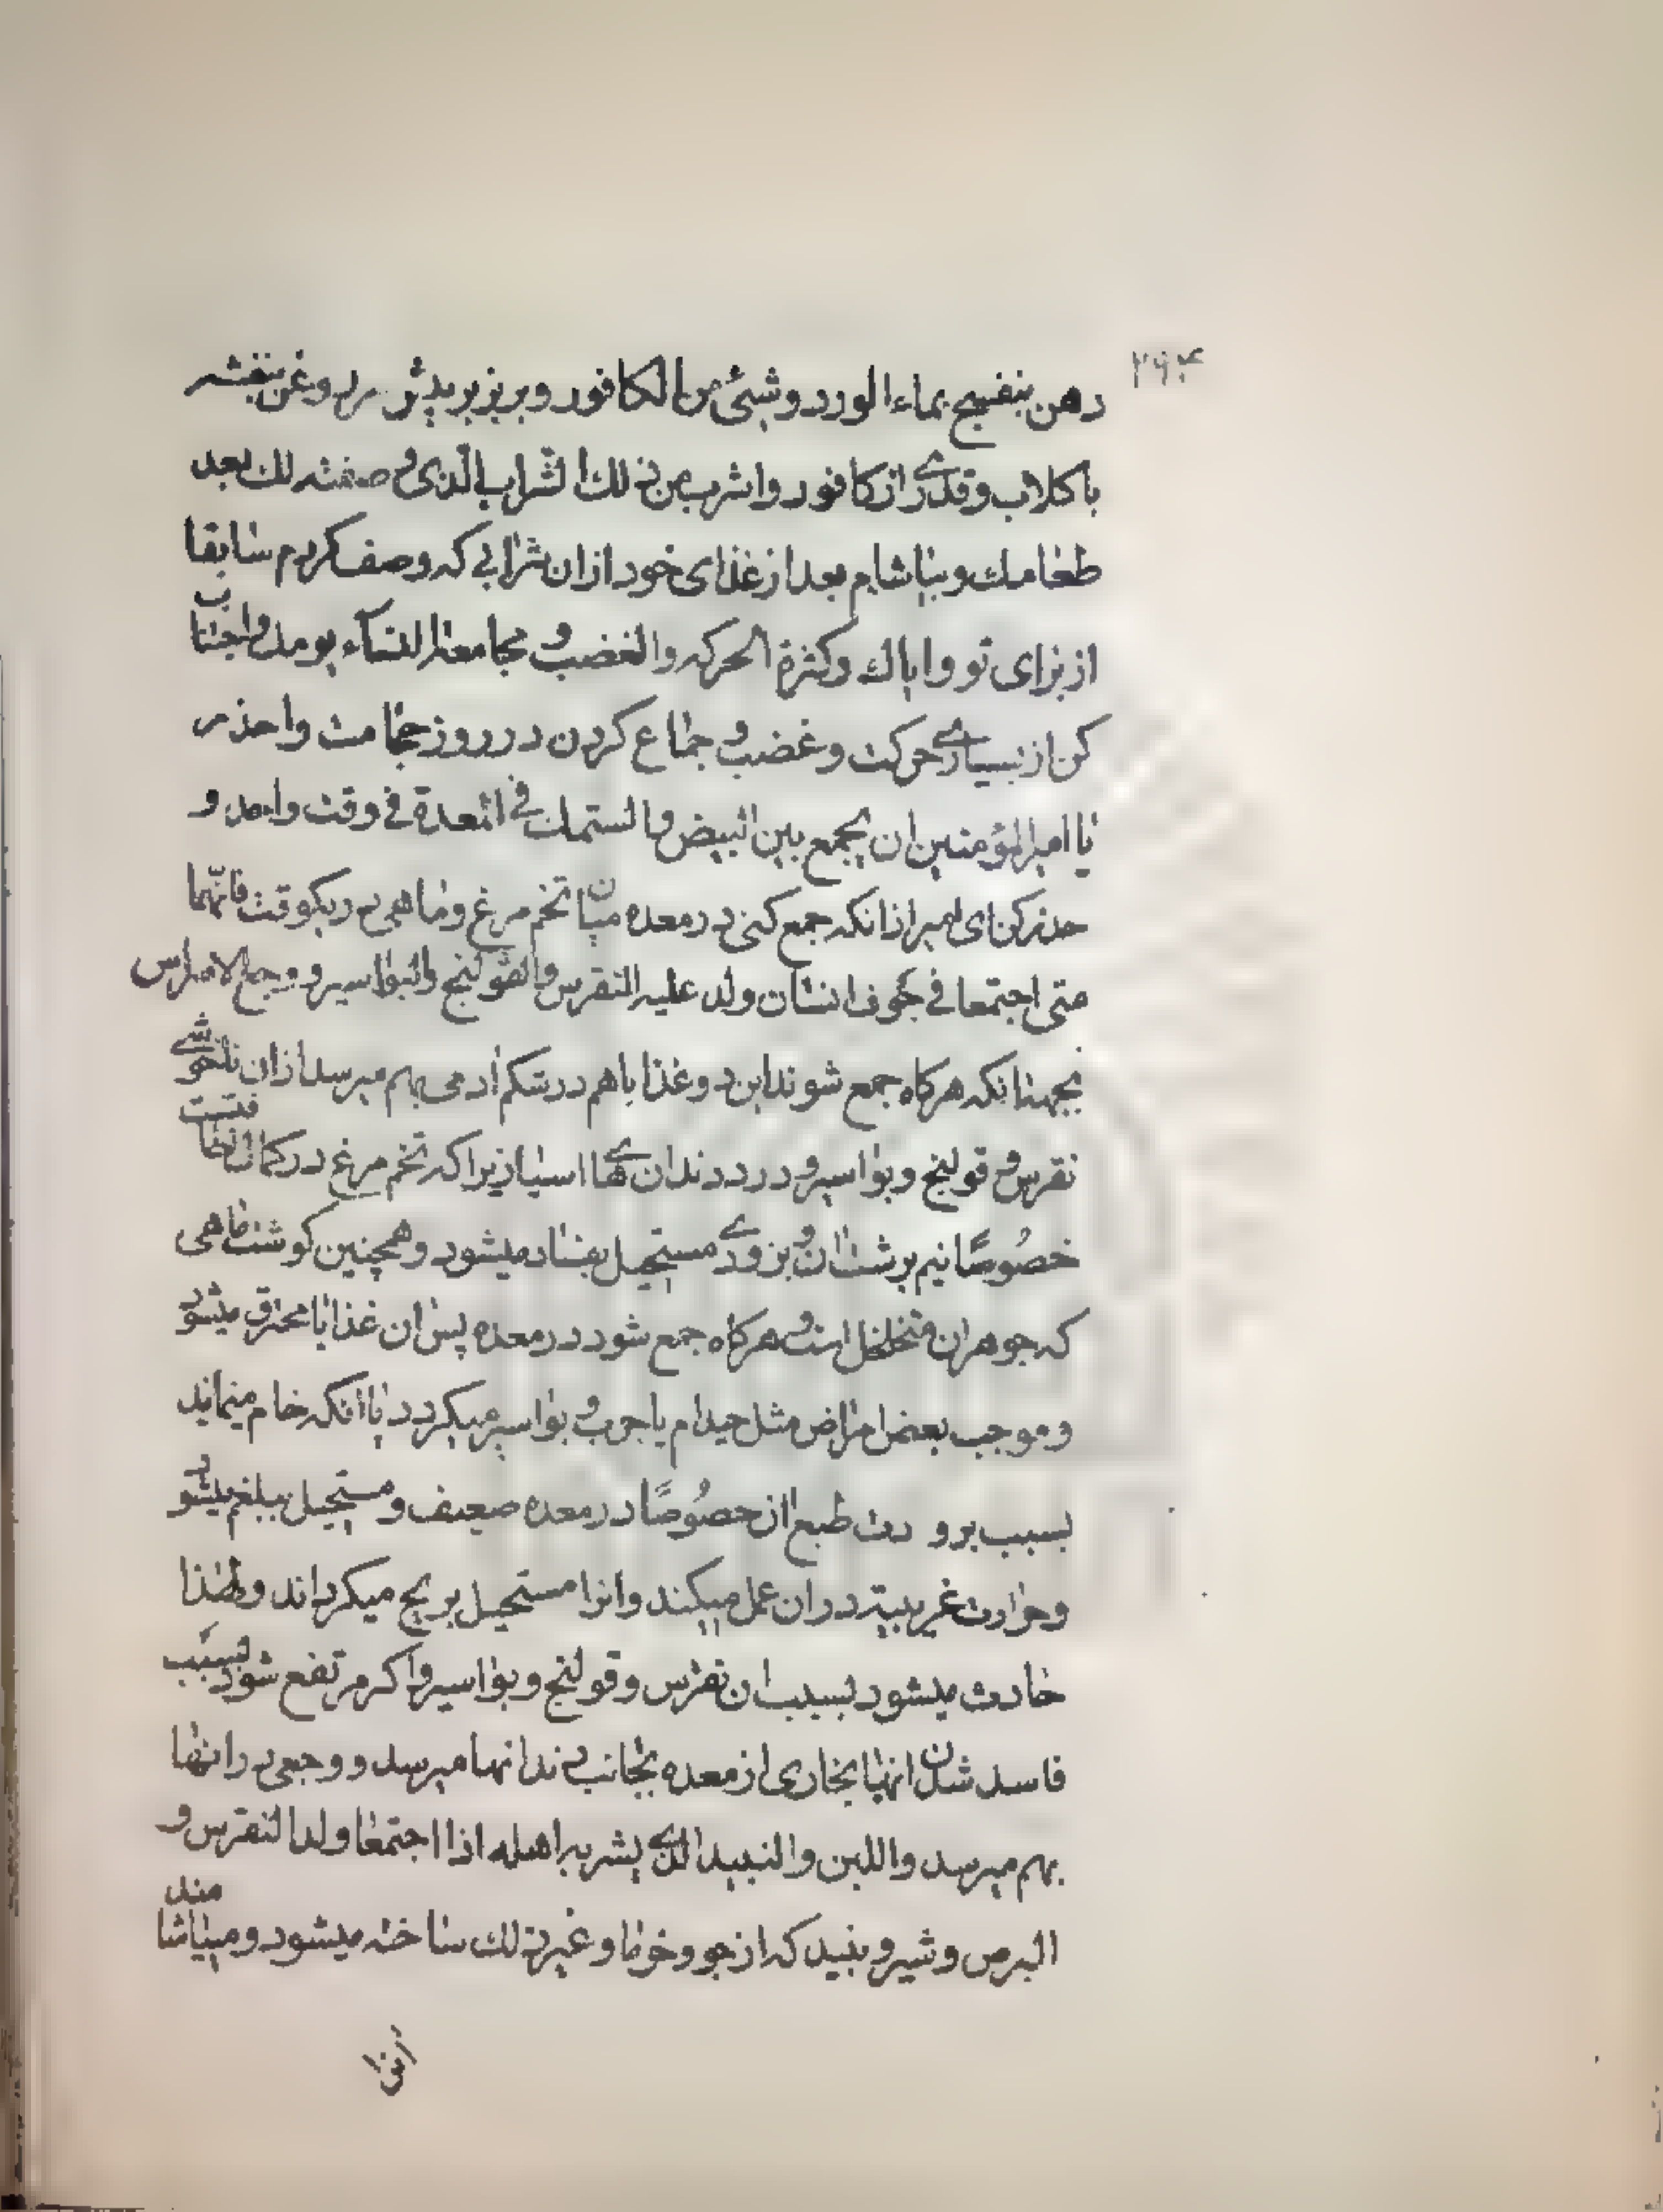 ۲۹۴
دهن بنفسج بماء الورد و شیئ من الکافور و بریز بر پیش سر روغن بنفشه
با کلاب و قدری از کافور و اشرب من ذلك الشراب الذی وصفته لك بعد
طعامك و بیاشام بعد از غذای خود از ان شرابی که وصف کردم سابقا
از برای تو و ایاك و کثرة الحرکه و الغضب و مجامعة النساء یومك و اجتناب
کن از بسیاری حرکت و غضب و جماع کردن در روز حجامت و احذر
یا امیر المؤمنین ان یجمع بین البیض و السمك فی المعدة فی وقت واحد و
حذر کن ای امیر از انکه جمع کنی در معده میان تخم مرغ و ماهی در یکوقت فانهما
متی اجتمعا فی جوف انسان ولد علیه النقرس و القولنج و البواسیر و وجع الاضراس
بجهت انکه هرکاه جمع شوند این دو غذا باهم در شکم ادمی بهم میرسد از ان ناخوشی
نقرس و قولنج و بواسیر و درد دندان های اسیا زیرا که تخم مرغ در کمال لطافتست
خصوصًا نیم برشت ان و بزودی مستحیل بفساد میشود و همچنین کوشت ماهی
که جوهر ان متخلخل است و هرکاه جمع شود در معده پس ان غذا یا محترق میشود
و موجب بعض امراض مثل جذام یا جرب و بواسیر میکردد یا انکه خام میماند
بسبب برودت طبع ان خصوصًا در معده ضعیف و مستحیل ببلغم میشود
و حرارت غریبیة در ان عمل میکند و انرا مستحیل بریح میکرداند و لهذا
حادث میشود بسبب ان نقرس و قولنج و بواسیر و اکر مرتفع شود بسبب
فاسد شدن انها بخاری از معده بجانب دندانها میرسد و وجعی در انها
بهم میرسد و اللبن و النبید الذی یشربه اهله اذا اجتمعا ولد النقرس و
البرص و شیر و نبید که از جو و خرما و غیر ذلك ساخته میشود و میاشامند
انرا